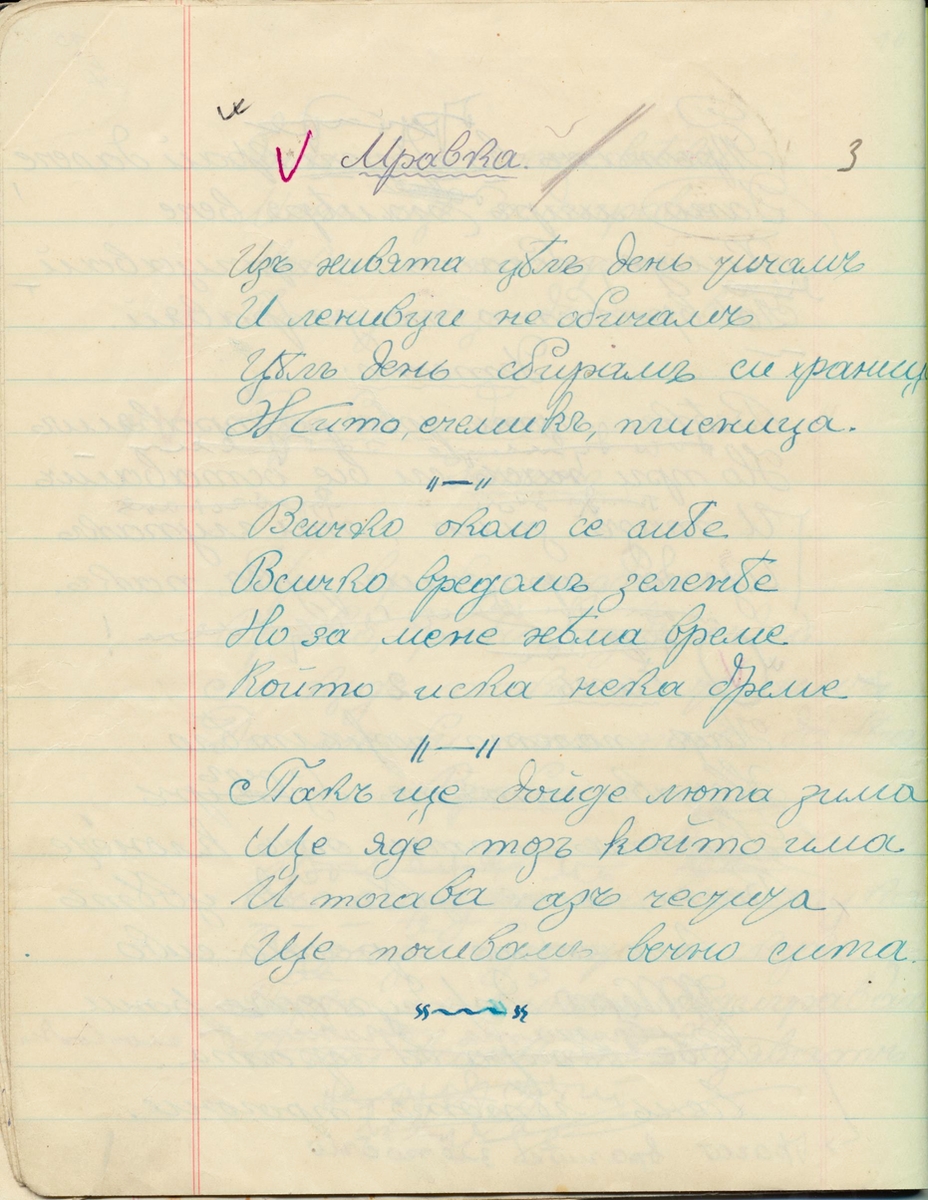 Мравка.
3
Изъ нивята цѣлъ день тичамъ
И ленивци не обичамъ
Цѣлъ день сбирамъ си храница
Жито, ечемикъ, пшеница.
"—"
Всичко около се смѣе
Всичко вредомъ зеленѣе
Но за мене нѣма време
Който иска нека дреме
"—"
Пакъ ще дойде люта зима
Ще яде тозъ който има
И тогава азъ
Ще почивамъ вечно сита.